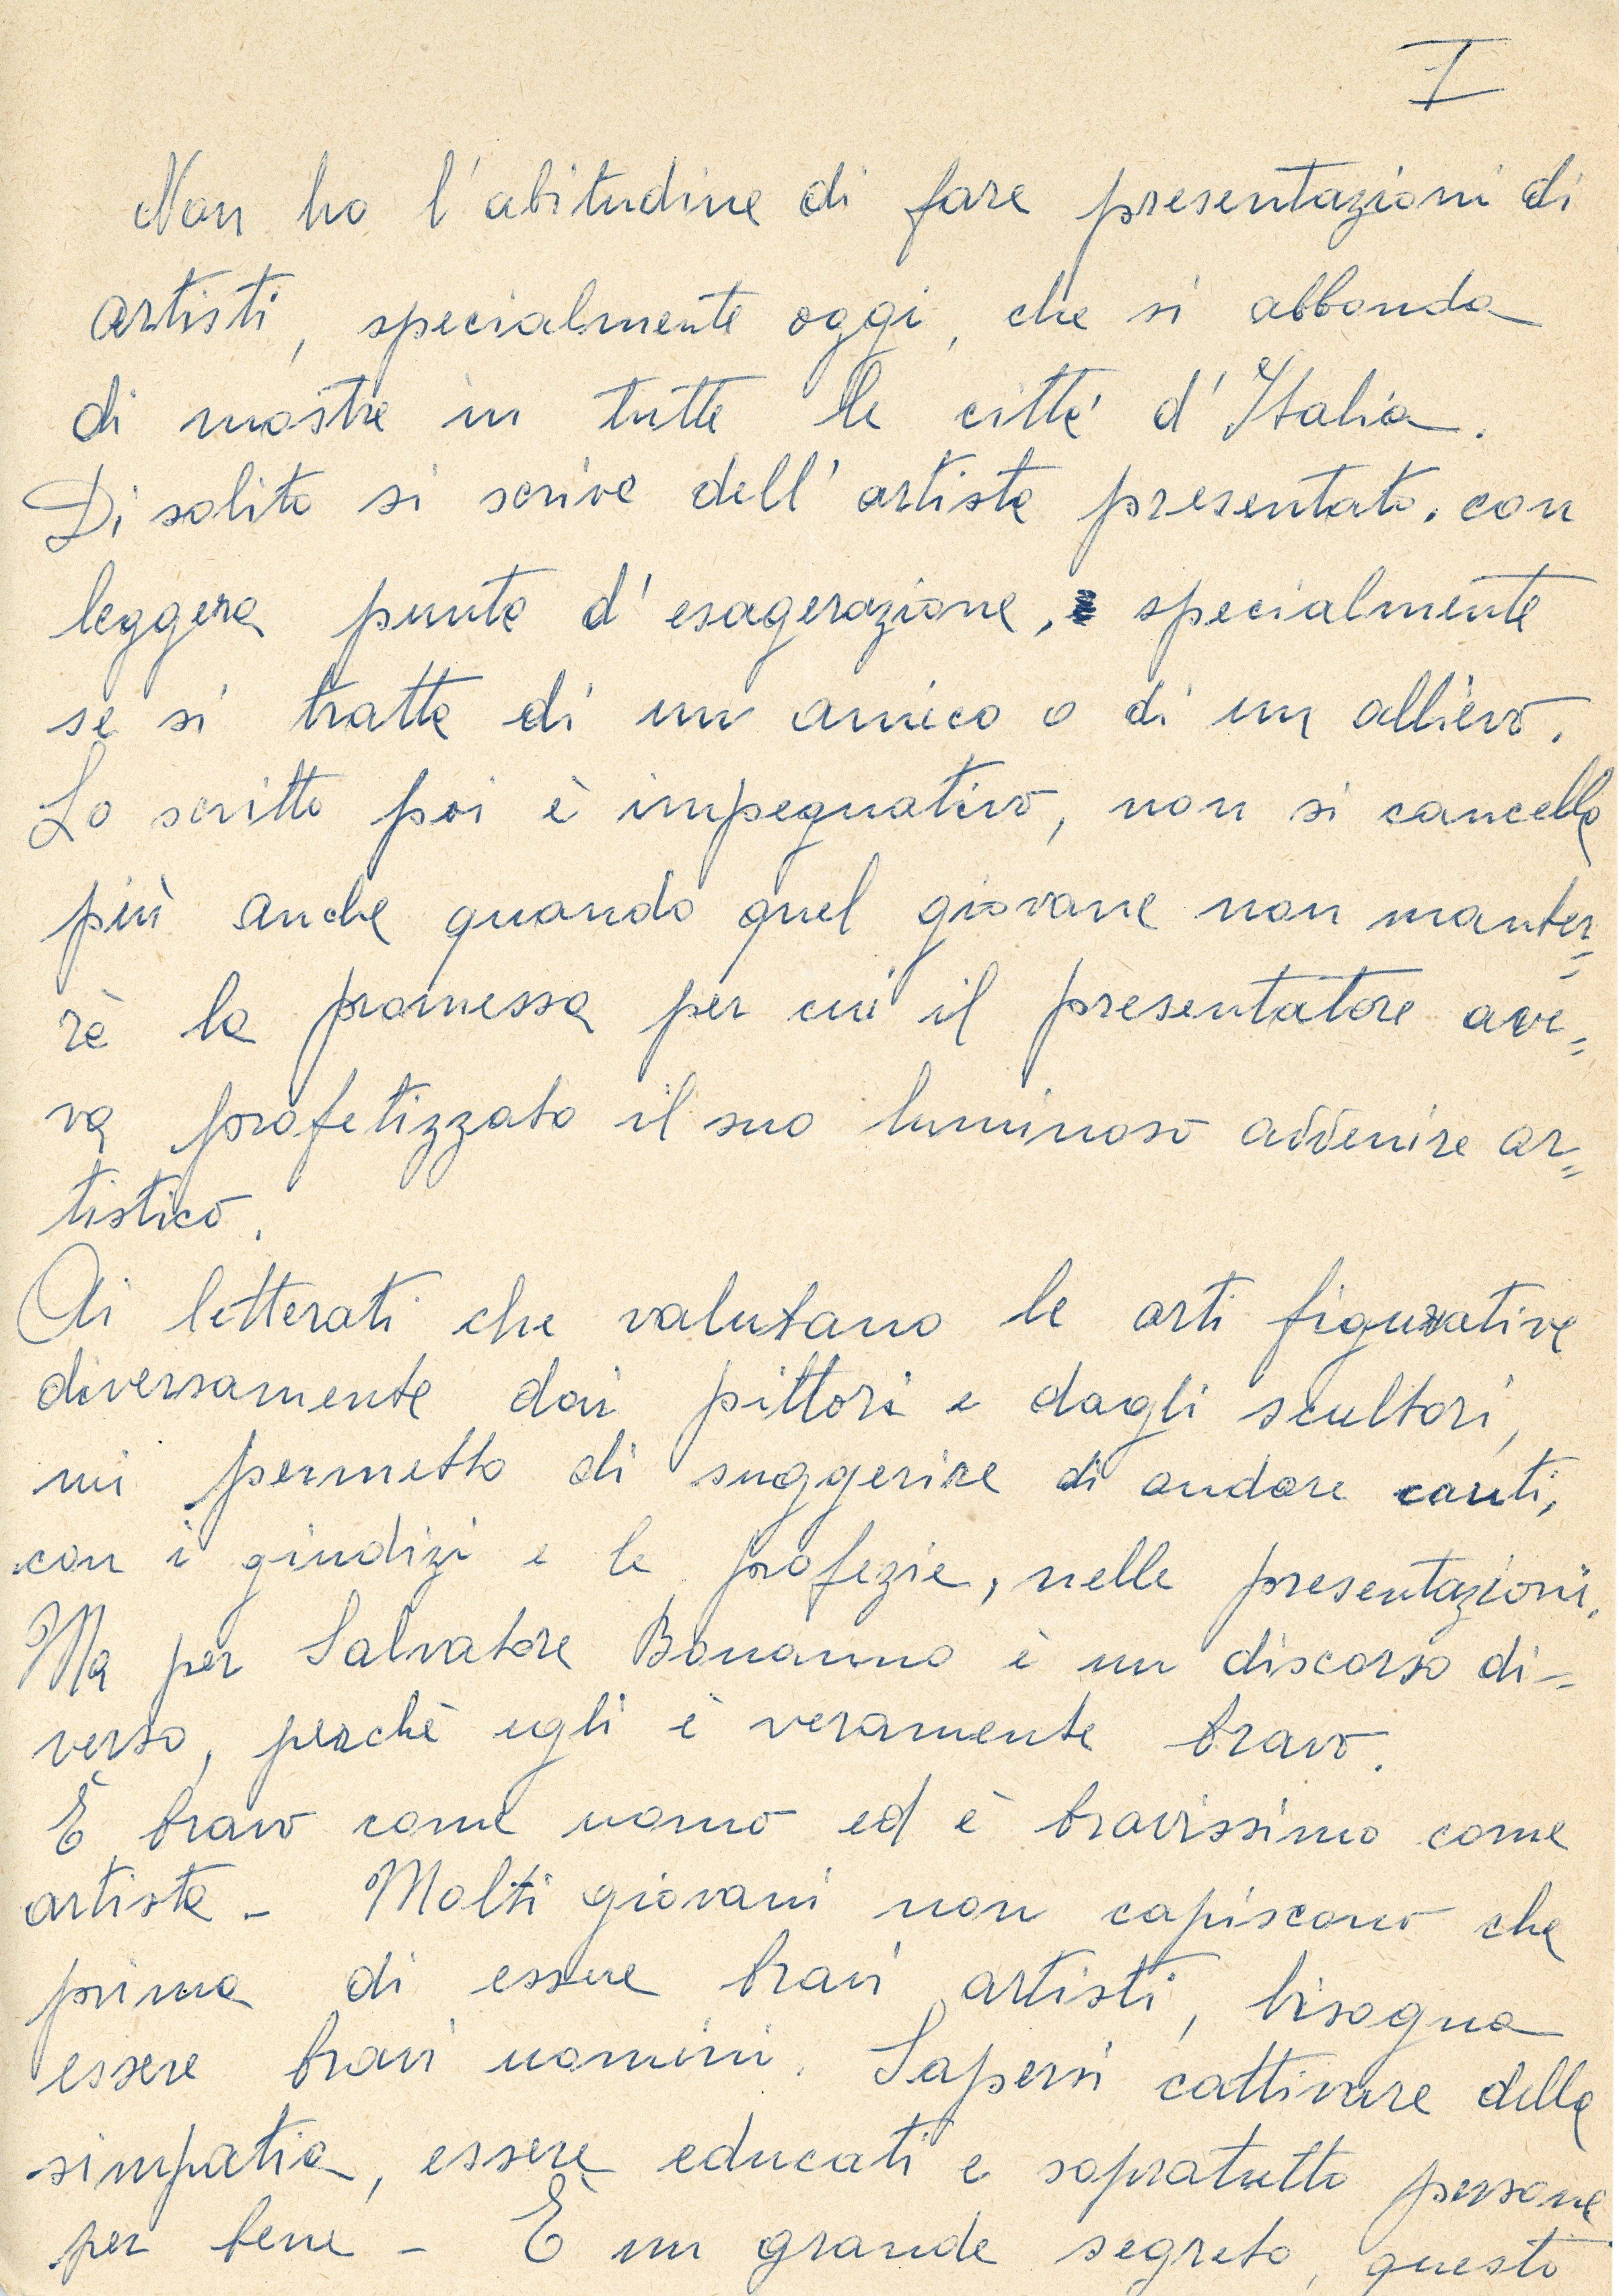 I
Non ho l'abitudine di fare presentazioni di
artisti, specialmente oggi, che si abbonda
di mostre in tutte le città d'Italia.
Di solito si scrive dell'artista presentato, con
leggera punta d'esagerazione, specialmente
se si tratta di un amico o di un allievo.
Lo scritto poi è impegnativo, non si cancella
più anche quando quel giovane non manter=
rà la promessa per cui il presentatore ave=
va profetizzato il suo luminoso avvenire ar=
tistico.
Ai letterati che valutano le arti figurative
diversamente dai pittori e dagli scultori,
mi permetto di suggerire di andare cauti,
con i giudizi e le profezie, nelle presentazioni.
Ma per Salvatore Bonanno è un discorso di=
verso, perchè egli è veramente bravo.
È bravo come uomo ed è bravissimo come
artista - Molti giovani non capiscono che
prima di essere bravi artisti, bisogna
essere bravi uomini. Sapersi cattivare della
simpatia, essere educati e sopratutto persone
per bene - È un grande segreto, questo